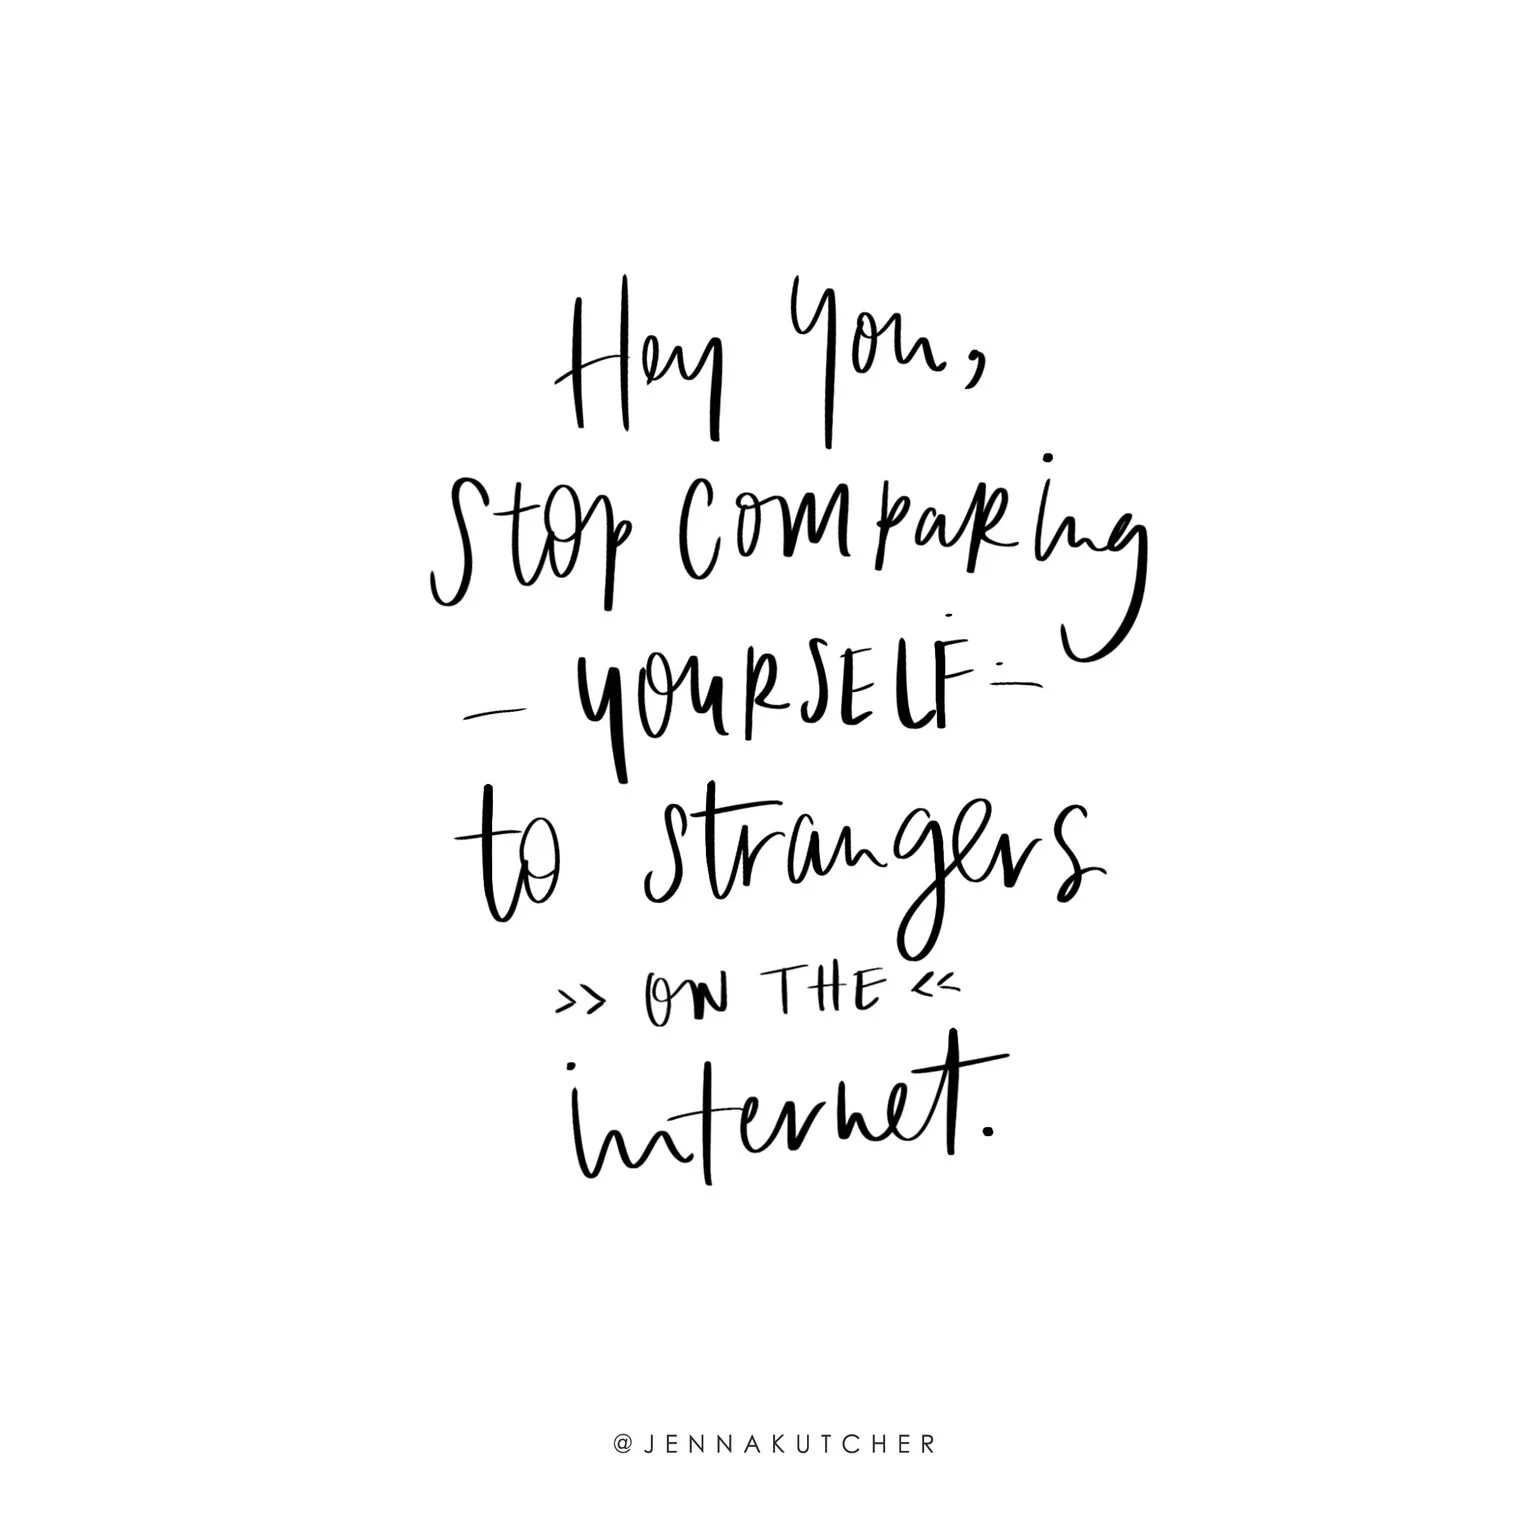 Hey you,
stop comparing
— YOURSELF —
to strangers
>> ON THE <<
internet.
@JENNAKUTCHER